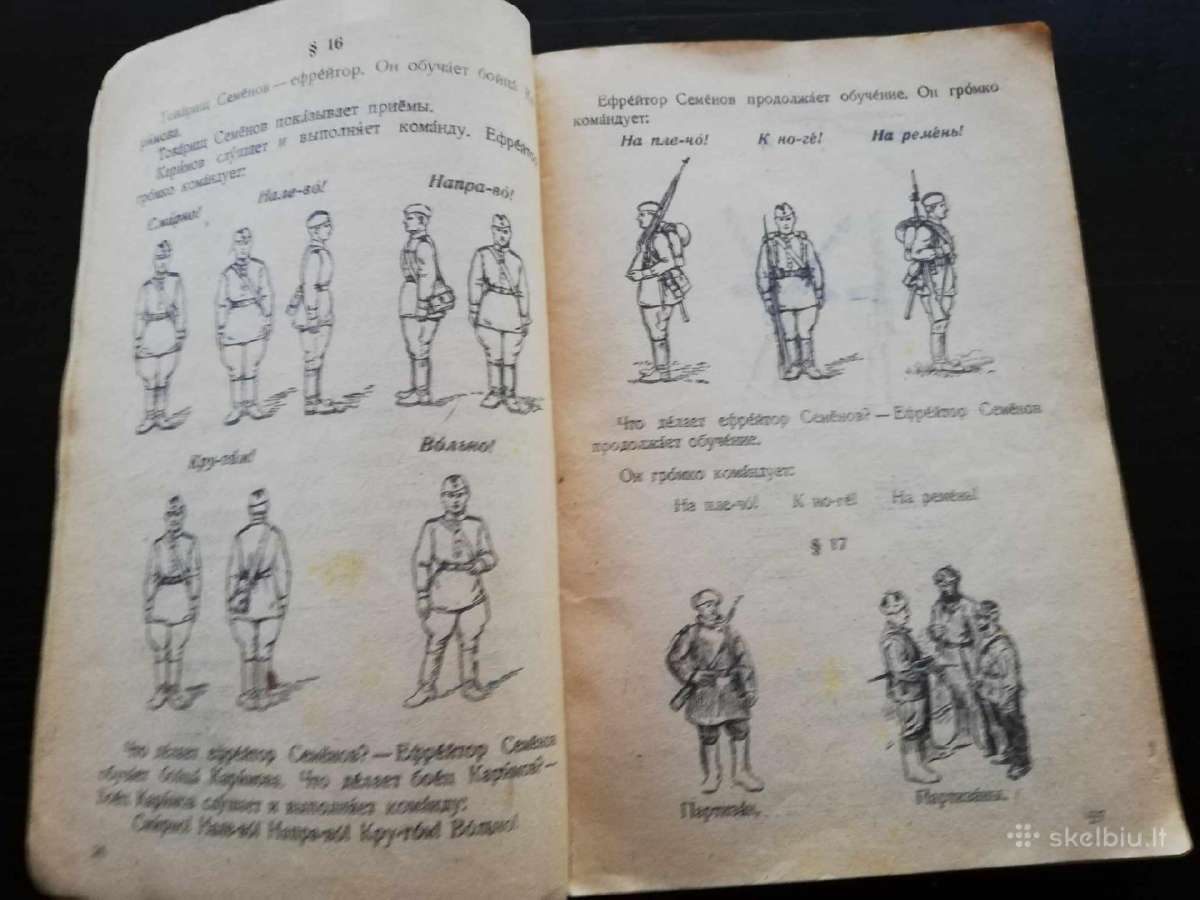 § 16
Това́рищ Семёнов — ефре́йтор. Он обуча́ет бойца́ Ка-
ри́мова.
Това́рищ Семёнов пока́зывает приёмы.
Кари́мов слу́шает и выполня́ет кома́нду. Ефре́йтор
гро́мко кома́ндует:
Сми́рно! Нале-во́! Напра-во́!
Кру-го́м! Во́льно!
Что де́лает ефре́йтор Семёнов? — Ефре́йтор Семёнов
обуча́ет бойца́ Кари́мова. Что де́лает бое́ц Кари́мов? —
Бое́ц Кари́мов слу́шает и выполня́ет кома́нду:
Сми́рно! Нале-во́! Напра-во́! Кру-го́м! Во́льно!
Ефре́йтор Семёнов продолжа́ет обуче́ние. Он гро́мко
кома́ндует:
На пле-чо́! К но-ге́! На реме́нь!
Что де́лает ефре́йтор Семёнов? — Ефре́йтор Семёнов
продолжа́ет обуче́ние.
Он гро́мко кома́ндует:
На пле-чо́! К но-ге́! На реме́нь!
§ 17
Партиза́н. Партиза́ны.
skelbiu.lt